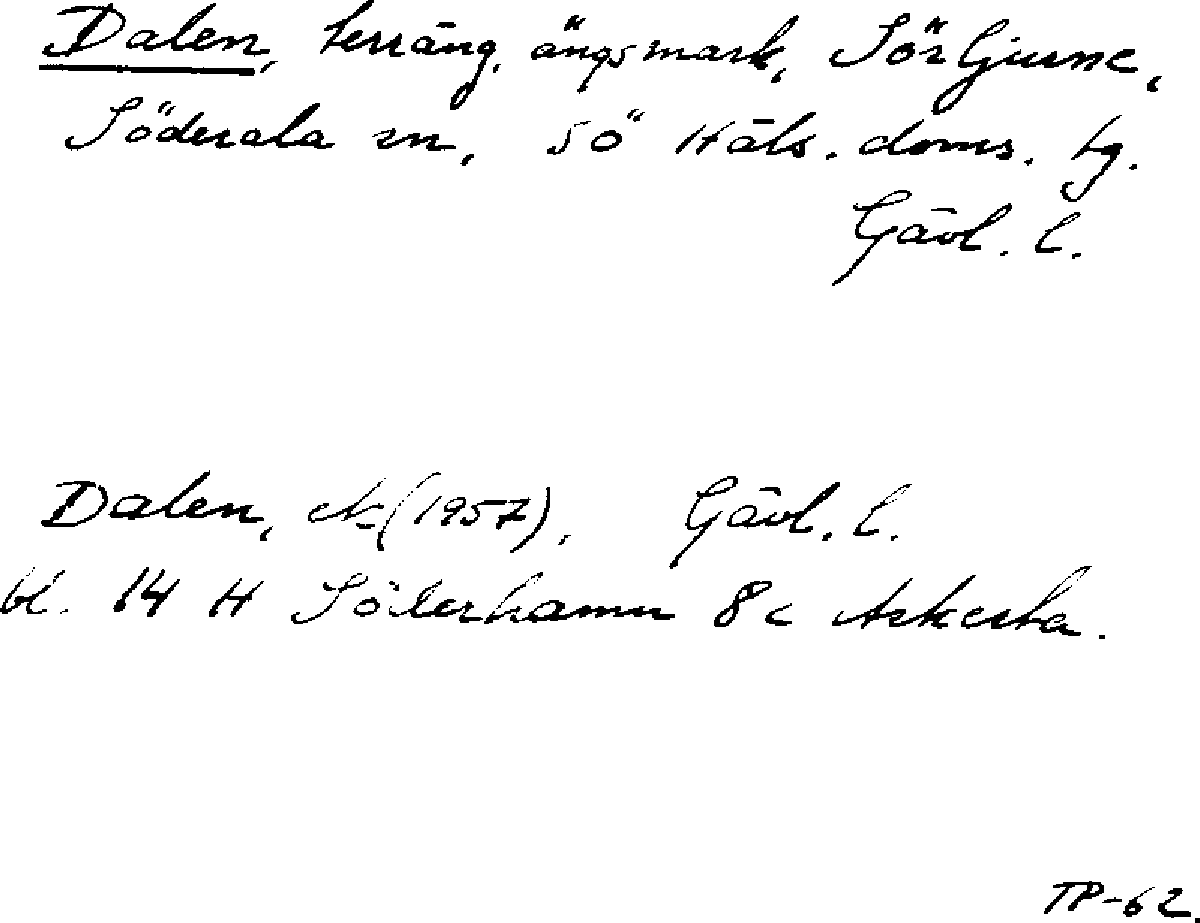 Dalen, terräng, ängsmark, Sörljusne,
Söderala sn, SÖ Häls. doms. tg.
Gävl. l.
Dalen, ek (1957), Gävl. l.
bl. 14 H Söderhamn 8c Askesta.
TP-62.